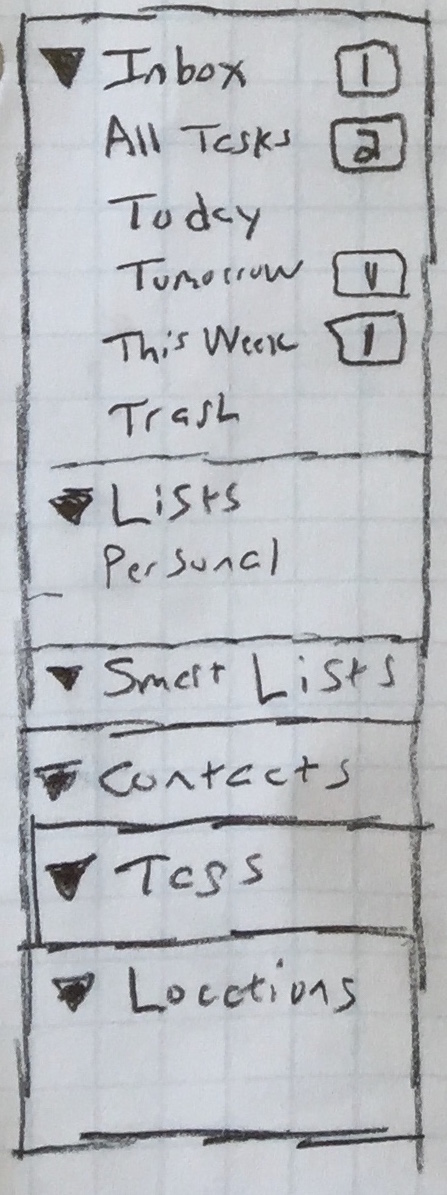 ▼ Inbox 1
All Tasks 2
Today
Tomorrow
This Week 1
Trash
▼ Lists
Personal
▼ Smart Lists
▼ Contacts
▼ Tags
▼ Locations